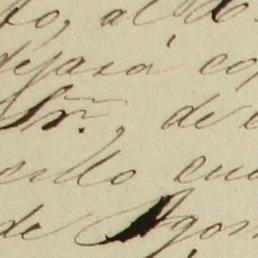 to, al
dejará co
Sr., de
sillo cua
de Agos